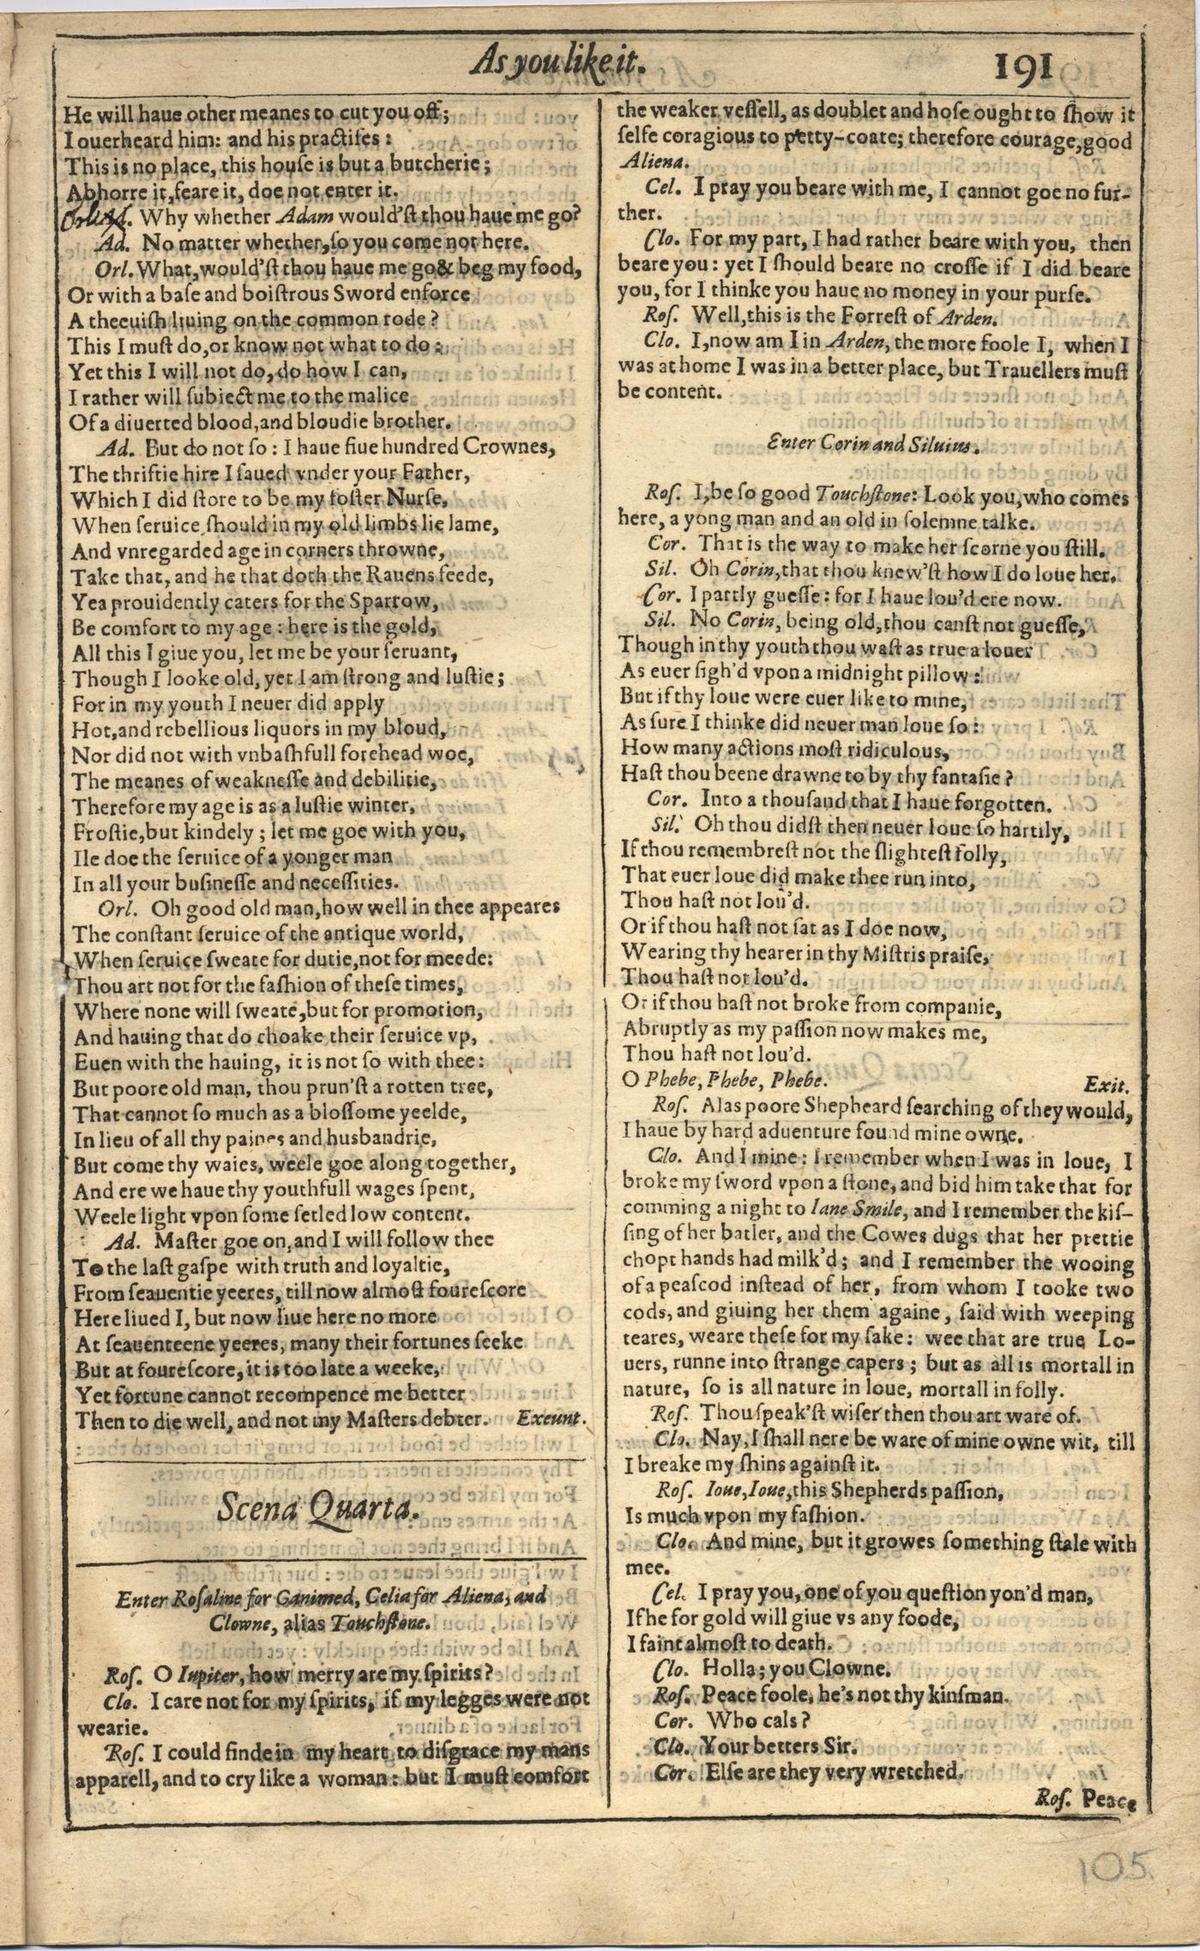 As you like it. 191
He will haue other meanes to cut you off;
I ouerheard him: and his practises:
This is no place, this house is but a butcherie;
Abhorre it, feare it, doe not enter it.
Orl. Why whether Adam would'st thou haue me go?
Ad. No matter whether, so you come not here.
Orl. What, would'st thou haue me go & beg my food,
Or with a base and boistrous Sword enforce
A theeuish liuing on the common rode?
This I must do, or know not what to do:
Yet this I will not do, do how I can,
I rather will subiect me to the malice
Of a diuerted blood, and bloudie brother.
Ad. But do not so: I haue fiue hundred Crownes,
The thriftie hire I saued vnder your Father,
Which I did store to be my foster Nurse,
When seruice should in my old limbs lie lame,
And vnregarded age in corners throwne,
Take that, and he that doth the Rauens feede,
Yea prouidently caters for the Sparrow,
Be comfort to my age: here is the gold,
All this I giue you, let me be your seruant,
Though I looke old, yet I am strong and lustie;
For in my youth I neuer did apply
Hot, and rebellious liquors in my bloud,
Nor did not with vnbashfull forehead woe,
The meanes of weaknesse and debilitie,
Therefore my age is as a lustie winter,
Frostie, but kindely; let me goe with you,
Ile doe the seruice of a yonger man
In all your businesse and necessities.
Orl. Oh good old man, how well in thee appeares
The constant seruice of the antique world,
When seruice sweate for dutie, not for meede:
Thou art not for the fashion of these times,
Where none will sweate, but for promotion,
And hauing that do choake their seruice vp,
Euen with the hauing, it is not so with thee:
But poore old man, thou prun'st a rotten tree,
That cannot so much as a blossome yeelde,
In lieu of all thy paines and husbandrie,
But come thy waies, weele goe along together,
And ere we haue thy youthfull wages spent,
Weele light vpon some setled low content.
Ad. Master goe on, and I will follow thee
To the last gaspe with truth and loyaltie,
From seauentie yeeres, till now almost fourescore
Here liued I, but now liue here no more
At seauenteene yeeres, many their fortunes seeke
But at fourescore, it is too late a weeke,
Yet fortune cannot recompence me better
Then to die well, and not my Masters debter. Exeunt.
Scena Quarta.
Enter Rosaline for Ganimed, Celia for Aliena, and
Clowne, alias Touchstone.
Ros. O Iupiter, how merry are my spirits?
Clo. I care not for my spirits, if my legges were not
wearie.
Ros. I could finde in my heart to disgrace my mans
apparell, and to cry like a woman: but I must comfort
the weaker vessell, as doublet and hose ought to show it
selfe coragious to petty-coate; therefore courage, good
Aliena.
Cel. I pray you beare with me, I cannot goe no fur-
ther.
Clo. For my part, I had rather beare with you, then
beare you: yet I should beare no crosse if I did beare
you, for I thinke you haue no money in your purse.
Ros. Well, this is the Forrest of Arden.
Clo. I, now am I in Arden, the more foole I, when I
was at home I was in a better place, but Trauellers must
be content.
Enter Corin and Siluius.
Ros. I, be so good Touchstone: Look you, who comes
here, a yong man and an old in solemne talke.
Cor. That is the way to make her scorne you still.
Sil. Oh Corin, that thou knew'st how I do loue her.
Cor. I partly guesse: for I haue lou'd ere now.
Sil. No Corin, being old, thou canst not guesse,
Though in thy youth thou wast as true a louer
As euer sigh'd vpon a midnight pillow:
But if thy loue were euer like to mine,
As sure I thinke did neuer man loue so:
How many actions most ridiculous,
Hast thou beene drawne to by thy fantasie?
Cor. Into a thousand that I haue forgotten.
Sil. Oh thou didst then neuer loue so hartily,
If thou remembrest not the slightest folly,
That euer loue did make thee run into,
Thou hast not lou'd.
Or if thou hast not sat as I doe now,
Wearing thy hearer in thy Mistris praise,
Thou hast not lou'd.
Or if thou hast not broke from companie,
Abruptly as my passion now makes me,
Thou hast not lou'd.
O Phebe, Phebe, Phebe. Exit.
Ros. Alas poore Shepheard searching of they would,
I haue by hard aduenture found mine owne.
Clo. And I mine: I remember when I was in loue, I
broke my sword vpon a stone, and bid him take that for
comming a night to Iane Smile, and I remember the kis-
sing of her batler, and the Cowes dugs that her prettie
chopt hands had milk'd; and I remember the wooing
of a peascod instead of her, from whom I tooke two
cods, and giuing her them againe, said with weeping
teares, weare these for my sake: wee that are true Lo-
uers, runne into strange capers; but as all is mortall in
nature, so is all nature in loue, mortall in folly.
Ros. Thou speak'st wiser then thou art ware of.
Clo. Nay, I shall nere be ware of mine owne wit, till
I breake my shins against it.
Ros. Ioue, Ioue, this Shepherds passion,
Is much vpon my fashion.
Clo. And mine, but it growes something stale with
mee.
Cel. I pray you, one of you question yon'd man,
If he for gold will giue vs any foode,
I faint almost to death.
Clo. Holla; you Clowne.
Ros. Peace foole, he's not thy kinsman.
Cor. Who cals?
Clo. Your betters Sir.
Cor. Else are they very wretched.
Ros. Peace
105